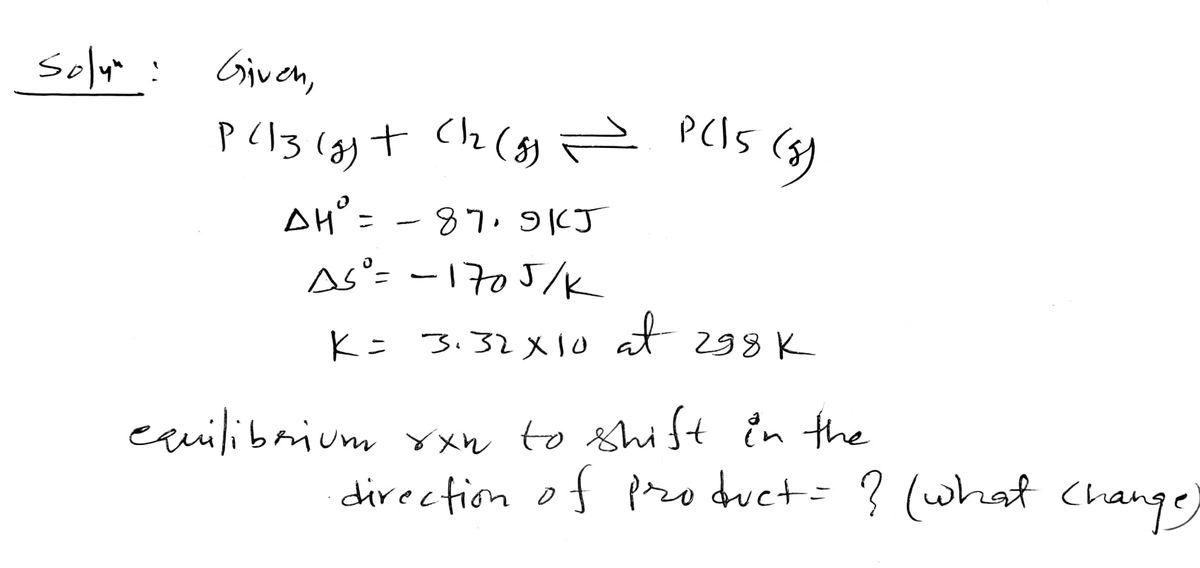 Solyn : Given,
PCl3(g) + Cl2(g) ⇌ PCl5(g)
ΔH° = -87.9KJ
ΔS° = -170J/K
K = 3.32×10 at 298K
equilibrium rxn to shift in the
direction of product = ? (what change)